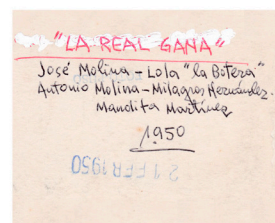 "LA REAL GANA"
José Molina - Lola "la Botera"
Antonio Molina - Milagros Hernández -
Mandita Martínez
1950
21 FEB 1950